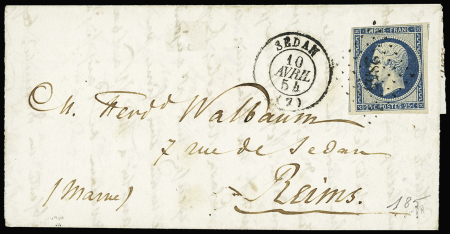 SEDAN
10
AVRIL
54
(7)
EMPIRE FRANC.
25c POSTES 25c
M. Ferdd Walbaum
7 rue de Sedan
(Marne) Reims.